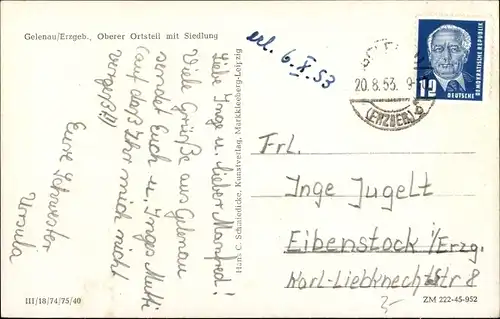 Gelenau/Erzgeb., Oberer Ortsteil mit Siedlung
erl. 6.X.53
20.8.53. 9-
(ERZGEB)
DEUTSCHE
DEMOKRATISCHE REPUBLIK
12
Liebe Inge u. lieber Manfred!
Viele Grüße aus Gelenau
sendet Euch u. Inges Mutti
(auf daß Ihr mich nicht
vergeßt!)
Eure Schwester
Ursula
Hans C. Schmiedicke, Kunstverlag, Markkleeberg-Leipzig
Frl.
Inge Jugelt
Eibenstock i/Erzg.
Karl-Liebknechtstr 8
III/18/74/75/40
ZM 222-45-952